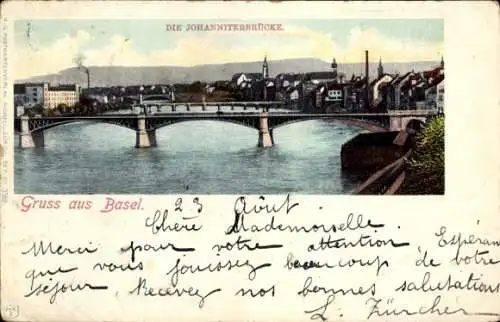 DIE JOHANNITERBRÜCKE.
Gruss aus Basel.
23 Août
Chère Mademoiselle
Merci pour votre attention Espérant
que vous jouissez beaucoup de votre
séjour Recevez nos bonnes salutations
L. Zürcher